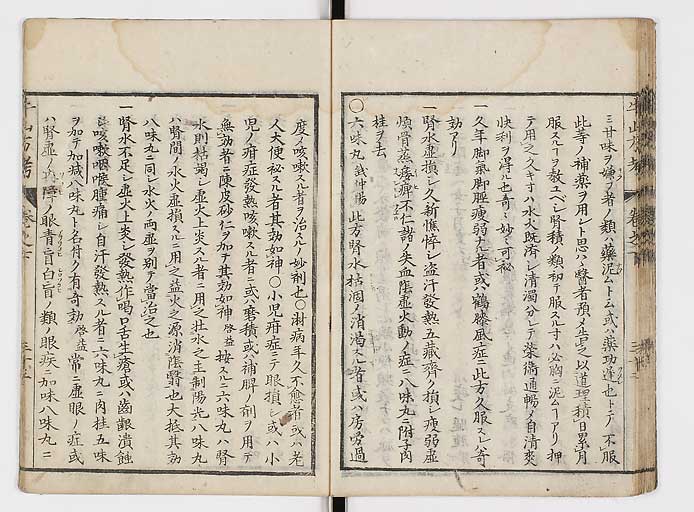 ミ甘味ヲ嫌フ者ノ類ハ藥泥ムトム或ハ藥功遲也トテ不服
此等ノ補藥ヲ用ント思ハ醫者預メ告ルニ以道理積日累月
服スルヲ教ユベシ腎積ノ類初テ服スル寸ハ必胸ニ泥ムヿアリ押
テ用之久キ寸ハ水火既濟シ清濁分レテ榮衛通暢ノ自清爽
快利ヲ得ル也奇々妙々可秘
一久年脚氣脚脛瘦弱ナル者或ハ鶴膝風ノ症ニ此方久服スレハ奇
効アリ
一腎水虛損シ久新憔悴シ盗汗發熱五藏齊ク損シ瘦弱虛
煩骨蒸痿痺不仁諸ノ失血陰虛火動ノ症ニ八味丸ニ附子肉
桂ヲ去
○六味丸 錢仲陽 此方腎水枯涸ノ消渇スル者或ハ房勞過
度ノ咳嗽スル者ヲ治スルノ妙劑也○淋病年久不愈者或ハ老
人大便秘スル者其効如神○小児疳症ニテ眼損シ或ハ小
児ノ疳症發熱咳嗽スル者ニ或ハ磨積或ハ補脾ノ剤ヲ用テ
無効者ニ陳皮砂仁ヲ加テ其効如神 啓益按スルニ六味丸ハ腎
水則枯渇シ虛火上炎スル者ニ用之壯水之主制陽光八味丸
ハ腎間ノ水火虛損スルニ用之益火之源消陰翳也大抵其効
八味丸ニ同シ水火ノ両虛ヲ別テ當治之也
一腎水不足シ虛火上炎シ發熱作喝口舌生瘡或ハ齒齦潰蝕
シ咳嗽咽喉腫痛シ自汗發熱スル者ニ六味丸ニ肉桂五味
ヲ加テ加減八味丸ト名付ク有奇効 啓益常ニ虛眼ノ症或
ハ腎虛ノ内障ノ眼青盲白盲ノ類ノ眼疾ニ加味八味丸ニ